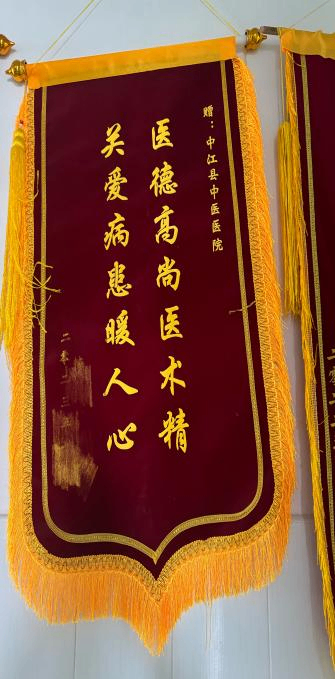 赠：中江县中医医院
医德高尚医术精
关爱病患暖人心
二零二三